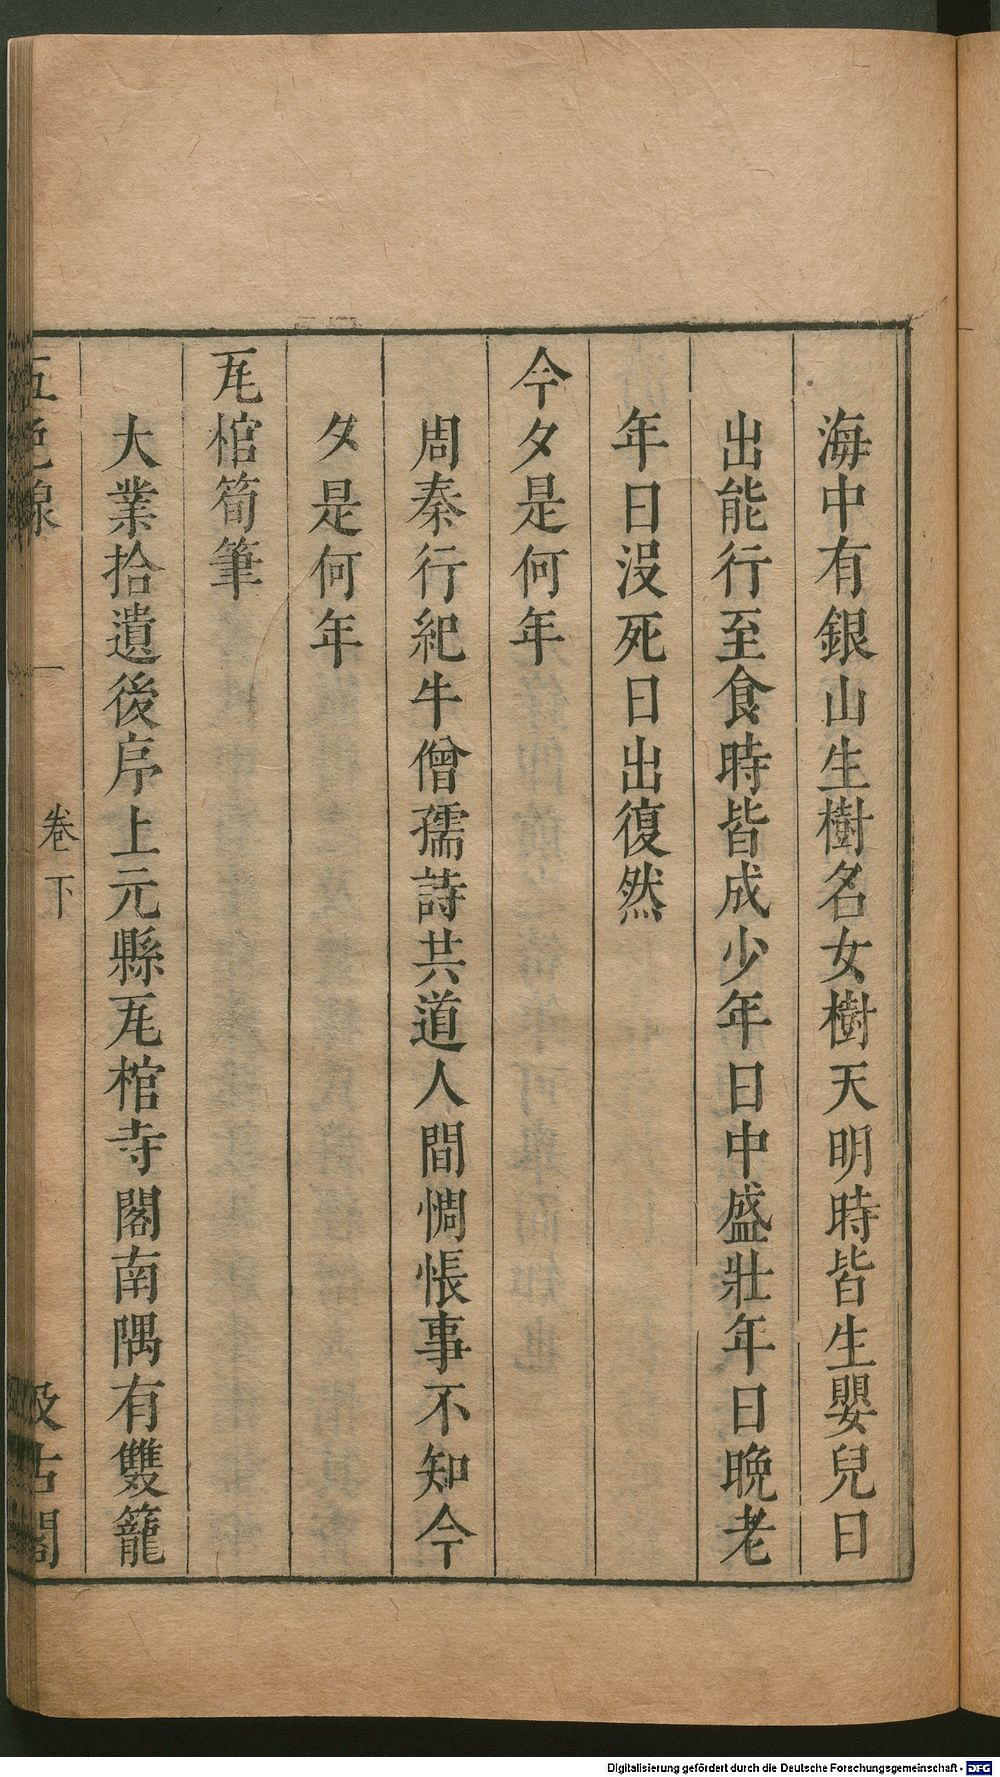 海中有銀山生樹名女樹天明時皆生嬰兒日
出能行至食時皆成少年日中盛壯年日晚老
年日沒死日出復然
今夕是何年
周秦行紀牛僧孺詩共道人間惆悵事不知今
夕是何年
瓦棺筍筆
大業拾遺後序上元縣瓦棺寺閣南隅有雙籠
五色線
卷下
汲古閣
Digitalisierung gefördert durch die Deutsche Forschungsgemeinschaft - DFG